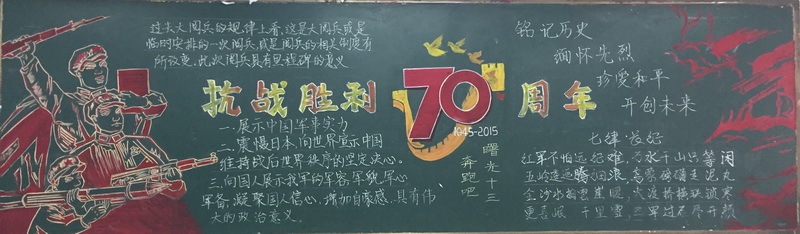 过去大阅兵的规律上看,这是大阅兵或是
临时安排的一次阅兵,或是阅兵的相关制度有
所改变,此次阅兵具有里程碑的意义
抗战胜利70周年
1945-2015
一.展示中国军事实力
二.震慑日本,向世界宣示中国
维持战后世界秩序的坚定决心。
三.向国人展示我军的军容,军貌,军心
军备,凝聚国人信心,增加自豪感,具有伟
大的政治意义。
奔跑吧
曙光十三
铭记历史
缅怀先烈
珍爱和平
开创未来
七律 长征
红军不怕远征难,万水千山只等闲
五岭逶迤腾细浪,乌蒙磅礴走泥丸
金沙水拍云崖暖,大渡桥横铁索寒
更喜岷 千里雪,三军过后尽开颜